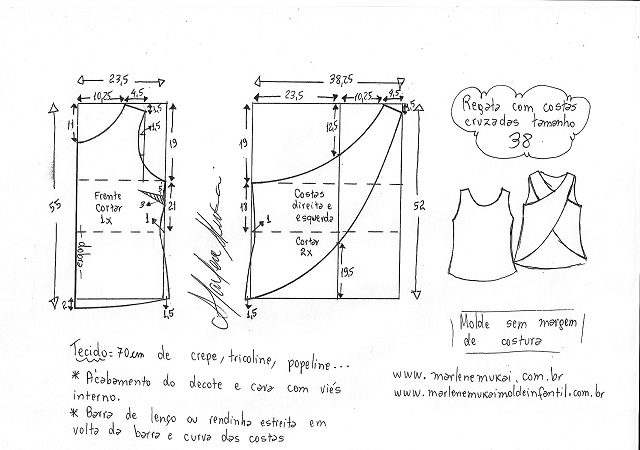 23,5
10,25
4,5
1,5
11
1,5
19
55
Frente
Cortar
1x
3
21
1
dobra
2
1,5
Marlene Mukai
38,25
23,5
10,25
4,5
1,5
12,5
19
Costas
direita e
esquerda
Cortar
2x
18
1
52
19,5
1,5
Regata com costas
cruzadas tamanho
38
Molde sem margem
de costura
Tecido = 70cm de crepe, tricoline, popeline...
* Acabamento do decote e cava com viés
interno.
* Barra de lenço ou rendinha estreita em
volta da barra e curva das costas
www.marlenemukai.com.br
www.marlenemukaimoldeinfantil.com.br